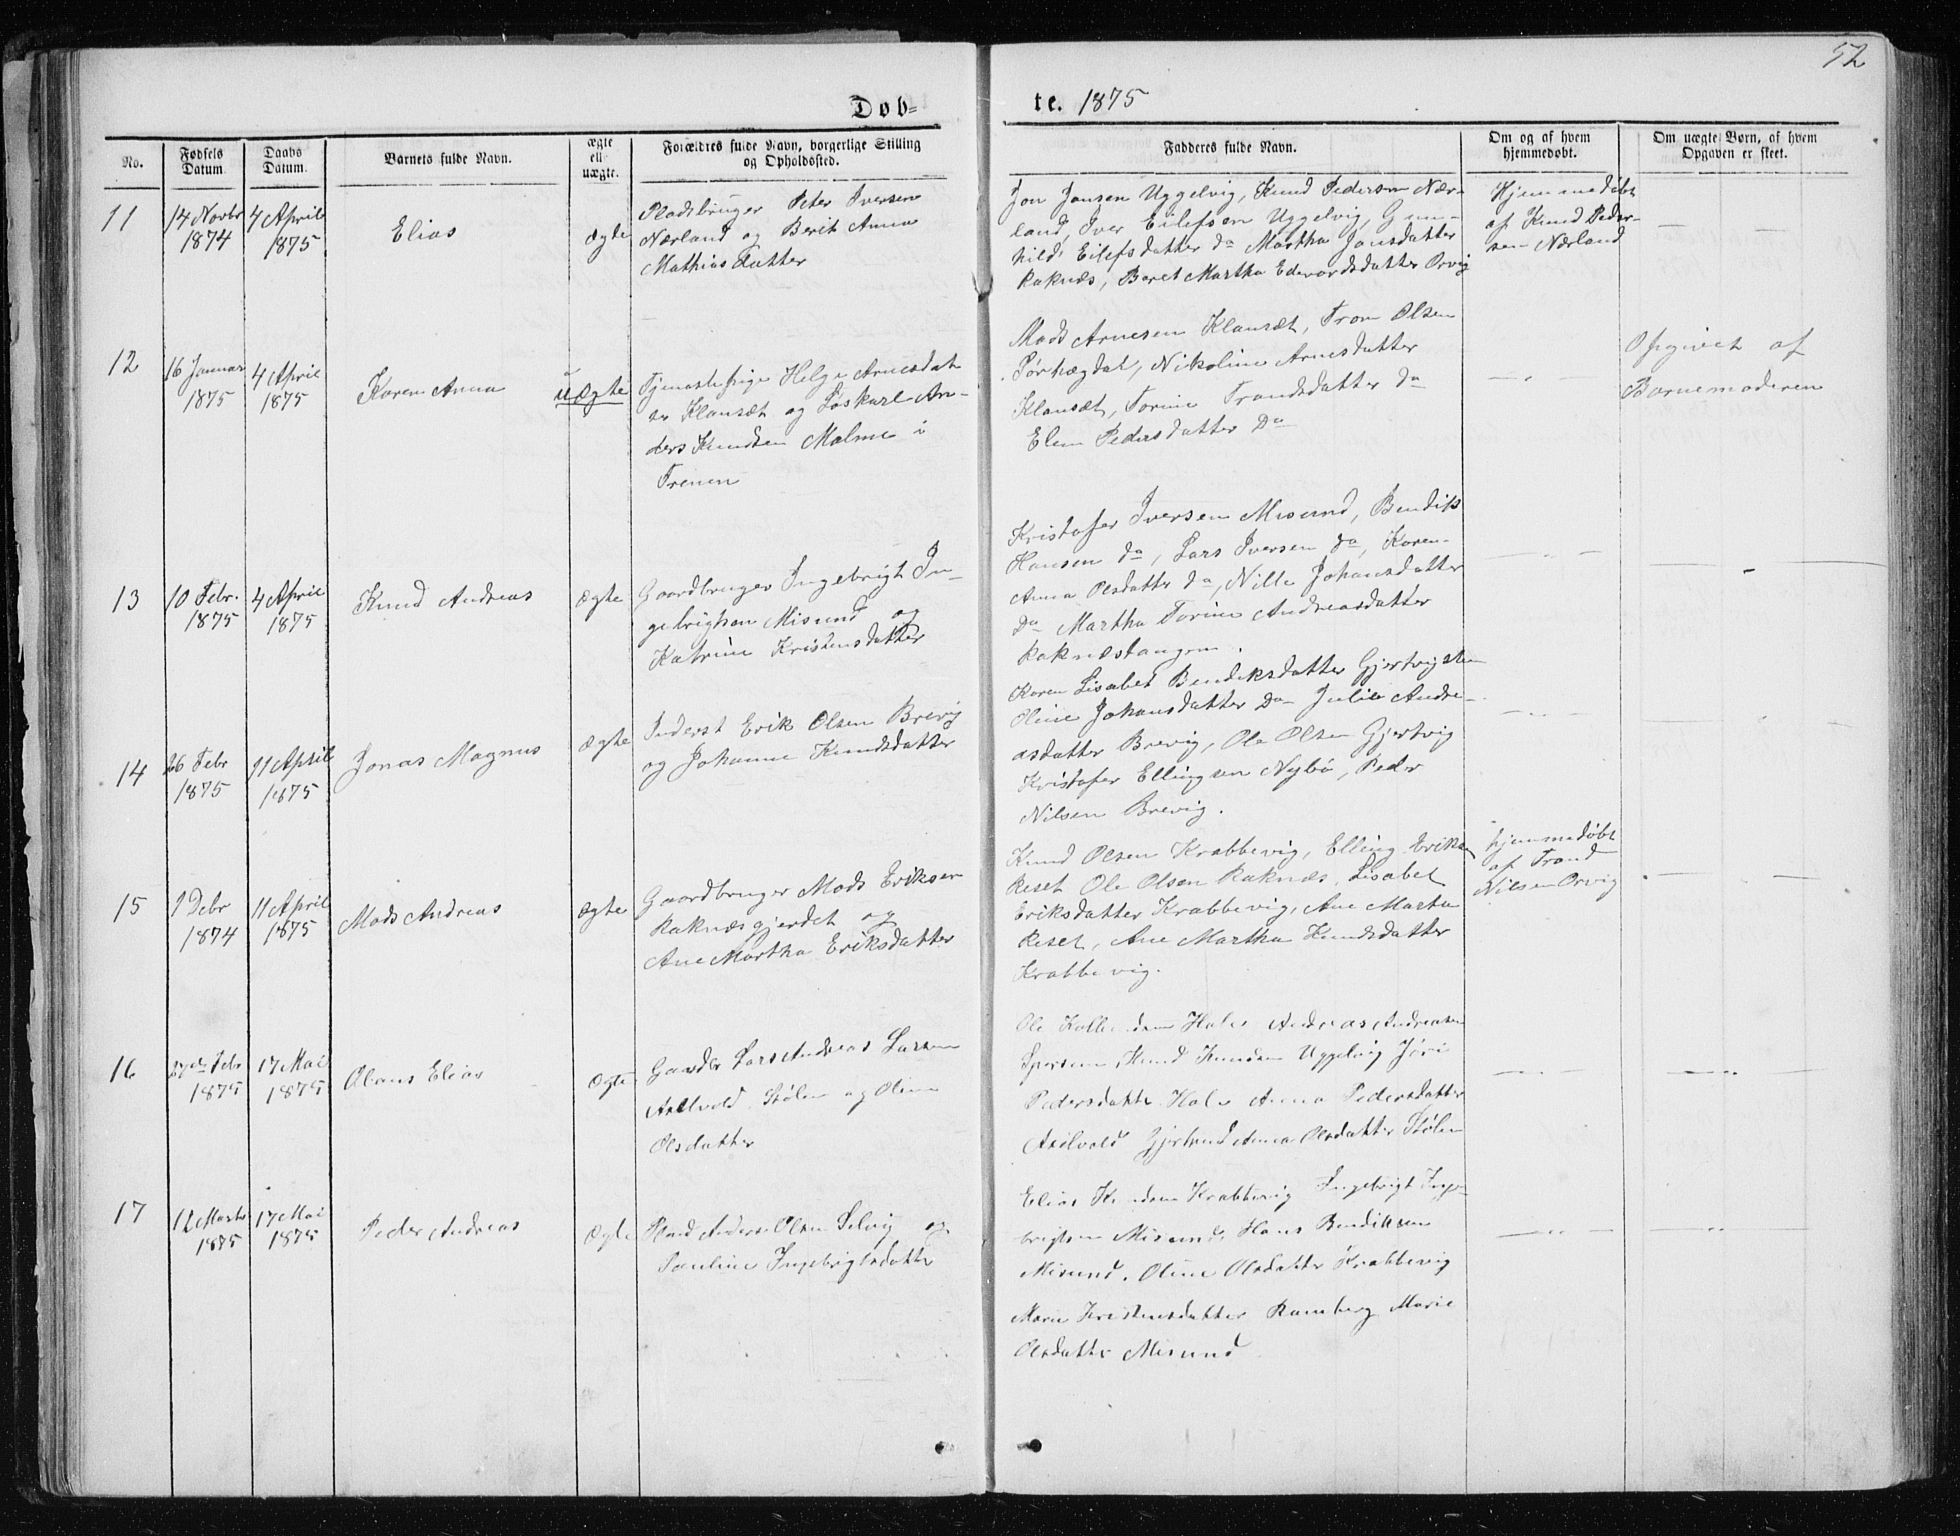 52
Døb-
te. 1875
No.
Fødsels Datum.
Daabs Datum.
Barnets fulde Navn.
ægte ell. uægte.
Forældres fulde Navn, borgerlige Stilling og Opholdssted.
Fadderes fulde Navn.
Om og af hvem hjemmedøbt.
Om uægte Børn, af hvem Opgaven er skeet.
11
14 Novbr 1874
4 April 1875
Elias
ægte
Pladsbruger Peter Iversen
Nærland og Berit Anna
Mathiasdatter
Jon Jonsen Uggelvig, Knud Pedersen Nær-
land, Iver Eilefsen Uggelvig, Gun-
hild Eilefsdatter do Martha Jonsdatter
Raknæs, Beret Martha Edvardsdatter Orvig
Hjemmedøbt
af Knud Peder-
sen Nærland
— —
12
16 Januar 1875
4 April 1875
Karen Anna
uægte
Tjenestepige Helge Arnesdat-
er Klausæt og Løskarl An-
ders Knudsen Malme i
Frenen
Mads Arnesen Klausæt, Tron Olsen
Tørhægdal, Nikoline Arnesdatter
Klausæt, Torine Trondsdatter do
Elen Pedersdatter Do
— " —
Opgivet af
Barnemoderen
13
10 Febr. 1875
4 April 1875
Knud Andreas
ægte
Gaardbruger Ingebrigt In-
gebrigtsen Misund og
Katrine Kristensdatter
Kristofer Iversen Misund, Bendik
Hansen do, Lars Iversen do, Karen-
Anna Olsdatter do, Nille Johansdatter
Do Martha Torine Andreasdatter
Raknæstangen.
14
26 Febr 1875
11 April 1875
Jonas Magnus
ægte
Inderst Erik Olsen Brevig
og Johanne Knudsdatter
Karen Lisabet Bendiksdatter Gjertvigsten
Oline Johansdatter Do Julie Andre-
asdatter Brevig, Ole Olsen Gjertvig
Kristofer Ellingsen Nybø, Peder
Nilsen Brevig.
15
1 Debr 1874
11 April 1875
Mads Andreas
ægte
Gaardbruger Mads Eriksen
Raknæsgjerdet og
Ane Martha Eriksdatter
Knud Olsen Krabbevig, Elling Eriksen
Reset Ole Olsen Raknæs, Lisabet
Eriksdatter Krabbevig, Ane Martha
Reset, Ane Martha Knudsdatter
Krabbevig.
hjemmedøbt
af Trond
Nilsen Orvig
16
27de Febr 1875
17 Mai 1875
Olaus Elias
ægte
Gaardbr Lars Andreas Larsen
Axelvold Stølen og Oline
Olsdatter
Ole Knudsen Hals Andreas Andreasen
Knud Knudsen Uggelvig Jøri
Pedersdatter Hals Anna Pedersdatter
Axelvold Gjertrud Anna Olsdatter Stølen
17
12 Marts 1875
17 Mai 1875
Peder Andreas
ægte
Anders Olsen Selvig og
Pauline Ingebrigtsdatter
Elias Knudsen Krabbevig Ingebrigt Inge-
brigtsen Misund, Hans Bendiksen
Misund. Oline Olsdatter Krabbevig
Marie Kristensdatter Ramberg Marie
Olsdatter Misund